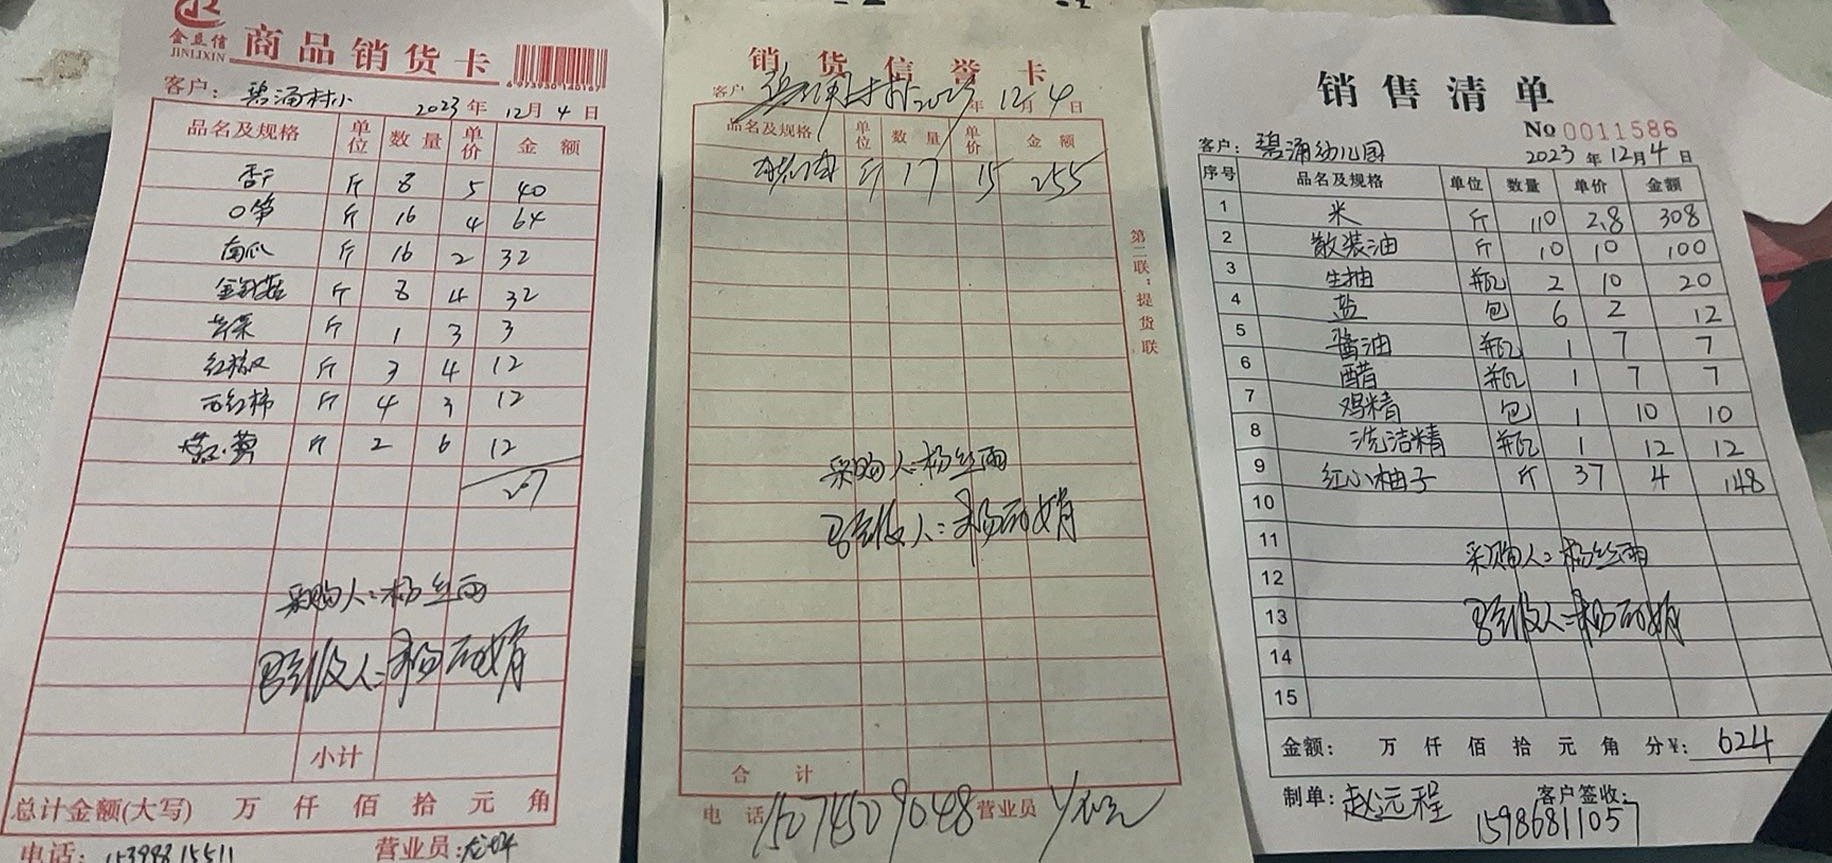 金立信
JINLIXIN
商品销货卡
6973930140167
客户: 碧涌村小 2023年12月4日
品名及规格 单位 数量 单价 金额
香干 斤 8 5 40
斤 16 4 64
南瓜 斤 16 2 32
金针菇 斤 8 4 32
芹菜 斤 1 3 3
红椒 斤 3 4 12
西红柿 斤 4 3 12
斤 2 6 12
207
采购人:杨丝雨
验收人:杨丽娟
小计
总计金额(大写) 万 仟 佰 拾 元 角
电话: 15399815511 营业员:
销货信誉卡
客户 碧涌村 2023年12月4日
品名及规格 单位 数量 单价 金额
斤 17 15 255
第二联:提货联
采购人:杨丝雨
验收人:杨丽娟
合计
电话 15074509048 营业员
销售清单
No 0011586
客户: 碧涌幼儿园 2023年12月4日
序号 品名及规格 单位 数量 单价 金额
1 米 斤 110 2.8 308
2 散装油 斤 10 10 100
3 生抽 瓶 2 10 20
4 盐 包 6 2 12
5 酱油 瓶 1 7 7
6 醋 瓶 1 7 7
7 鸡精 包 1 10 10
8 洗洁精 瓶 1 12 12
9 红小柚子 斤 37 4 148
10
11
采购人:杨丝雨
12
13 验收人:杨丽娟
14
15
金额: 万 仟 佰 拾 元 角 分 ¥: 624
制单: 赵远程 客户签收:
15986811057